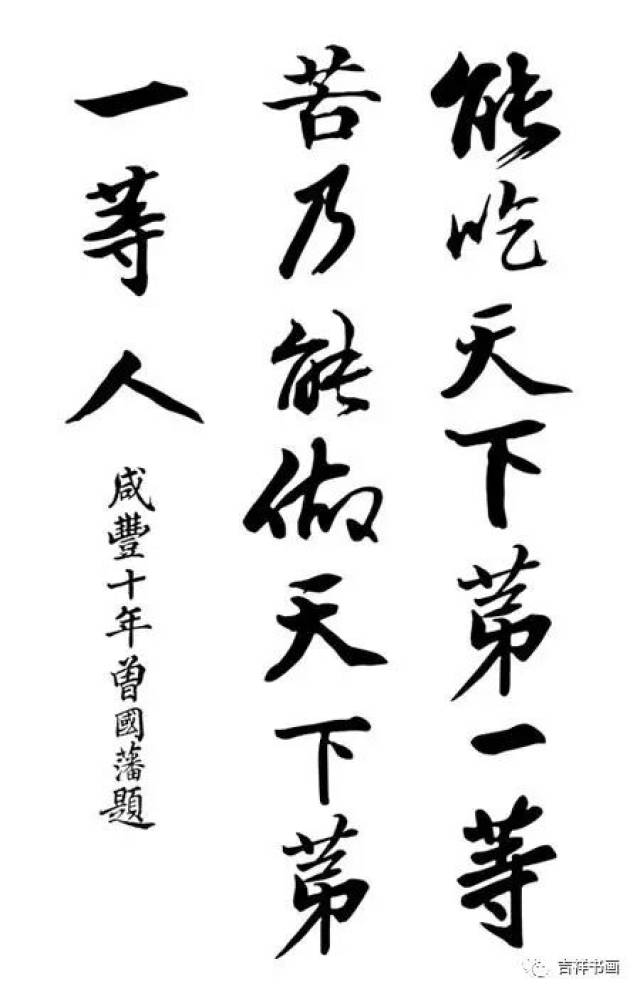 能吃天下第一等
苦乃能做天下第
一等人
咸豐十年曾國藩題
吉祥书画